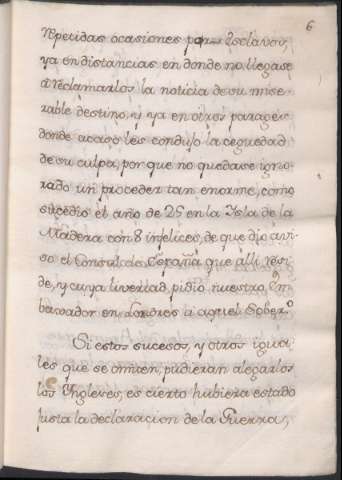 6
repetidas ocasiones por Esclavos,
ya en distancias en donde no llegase
à reclamarlos la noticia de su mise-
rable destino, y ya en otros parages
donde acaso les condujo la ceguedad
de su culpa, por que no quedase igno-
rado un proceder tan enorme, como
sucedio el año de 25 en la Isla de la
Madera con 8 infelices, de que dio avi-
so el Consul de España que alli resi-
de, y cuya livertad pidio nuestro Em
baxador en Londres à aquel Sober.º
Si estos sucesos, y otros igua-
les que se omiten, pudieran alegarlos
los Yngleses, es cierto hubiera estado
justa la declaracion de la Guerra,